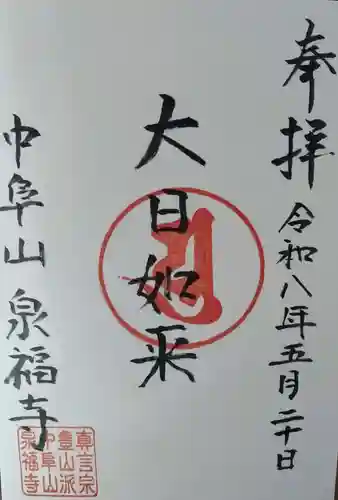 奉拝
令和八年五月二十日
大日如来
中阜山
泉福寺
真言宗
豊山派
中阜山
泉福寺